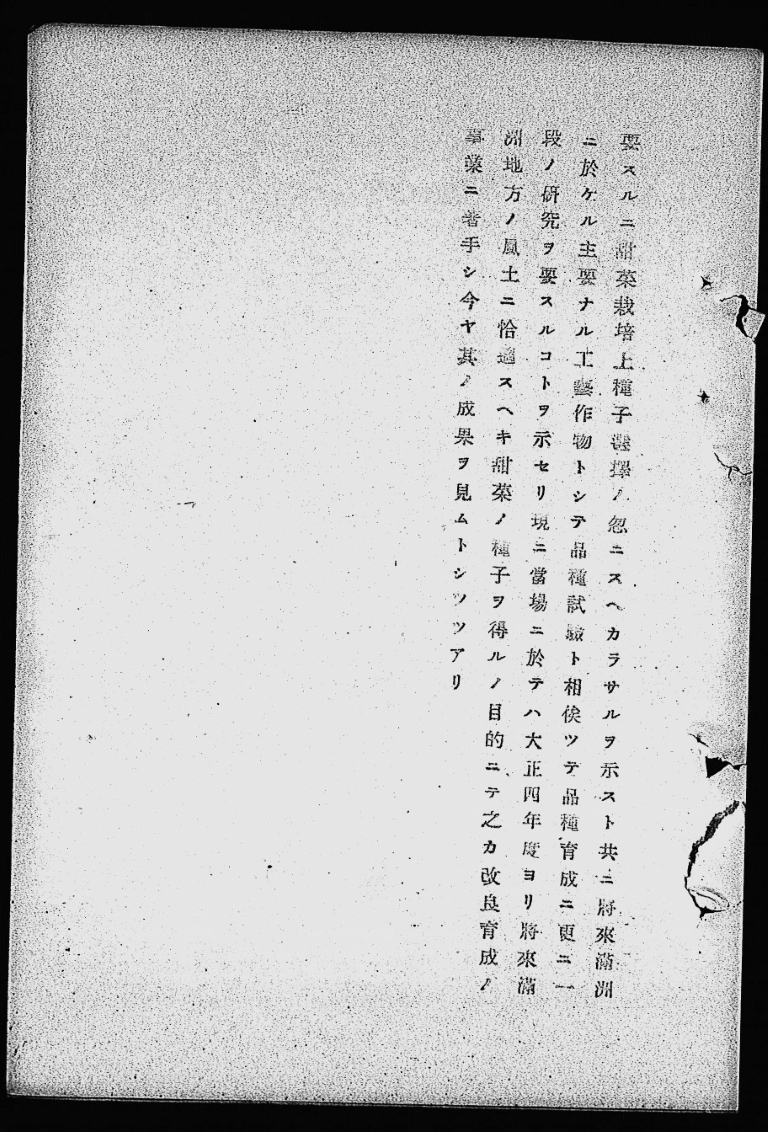 要スルニ甜菜栽培上種子選擇ノ忽ニスヘカラサルヲ示スト共ニ將來滿洲
ニ於ケル主要ナル工藝作物トシテ品種試驗ト相俟ツテ品種育成ニ更ニ一
段ノ硏究ヲ要スルコトヲ示セリ現ニ當場ニ於テハ大正四年度ヨリ將來滿
洲地方ノ風土ニ恰適スヘキ甜菜ノ種子ヲ得ルノ目的ニテ之カ改良育成ノ
事業ニ着手シ今ヤ其ノ成果ヲ見ムトシツツアリ